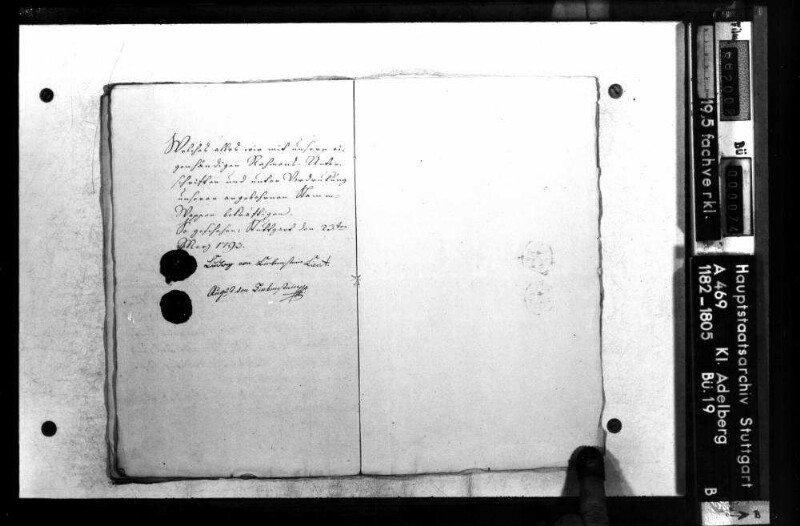 Welches alles wir mit unsern ei-
genhändigen Nahmens-Unter-
schriften und unter Vordrukung
unserer angebohrnen Stamm-
Wappen bekräftigen.
So geschehen, Stuttgart den 23ten
Merz 1793.
Ludwig von Liebenstein Lieut.
August von Liebenstein
Film
662002
Bü
000074
19,5 fach verkl.
Hauptstaatsarchiv Stuttgart
A 469 Kl. Adelberg
1182–1805 Bü. 19
B
B